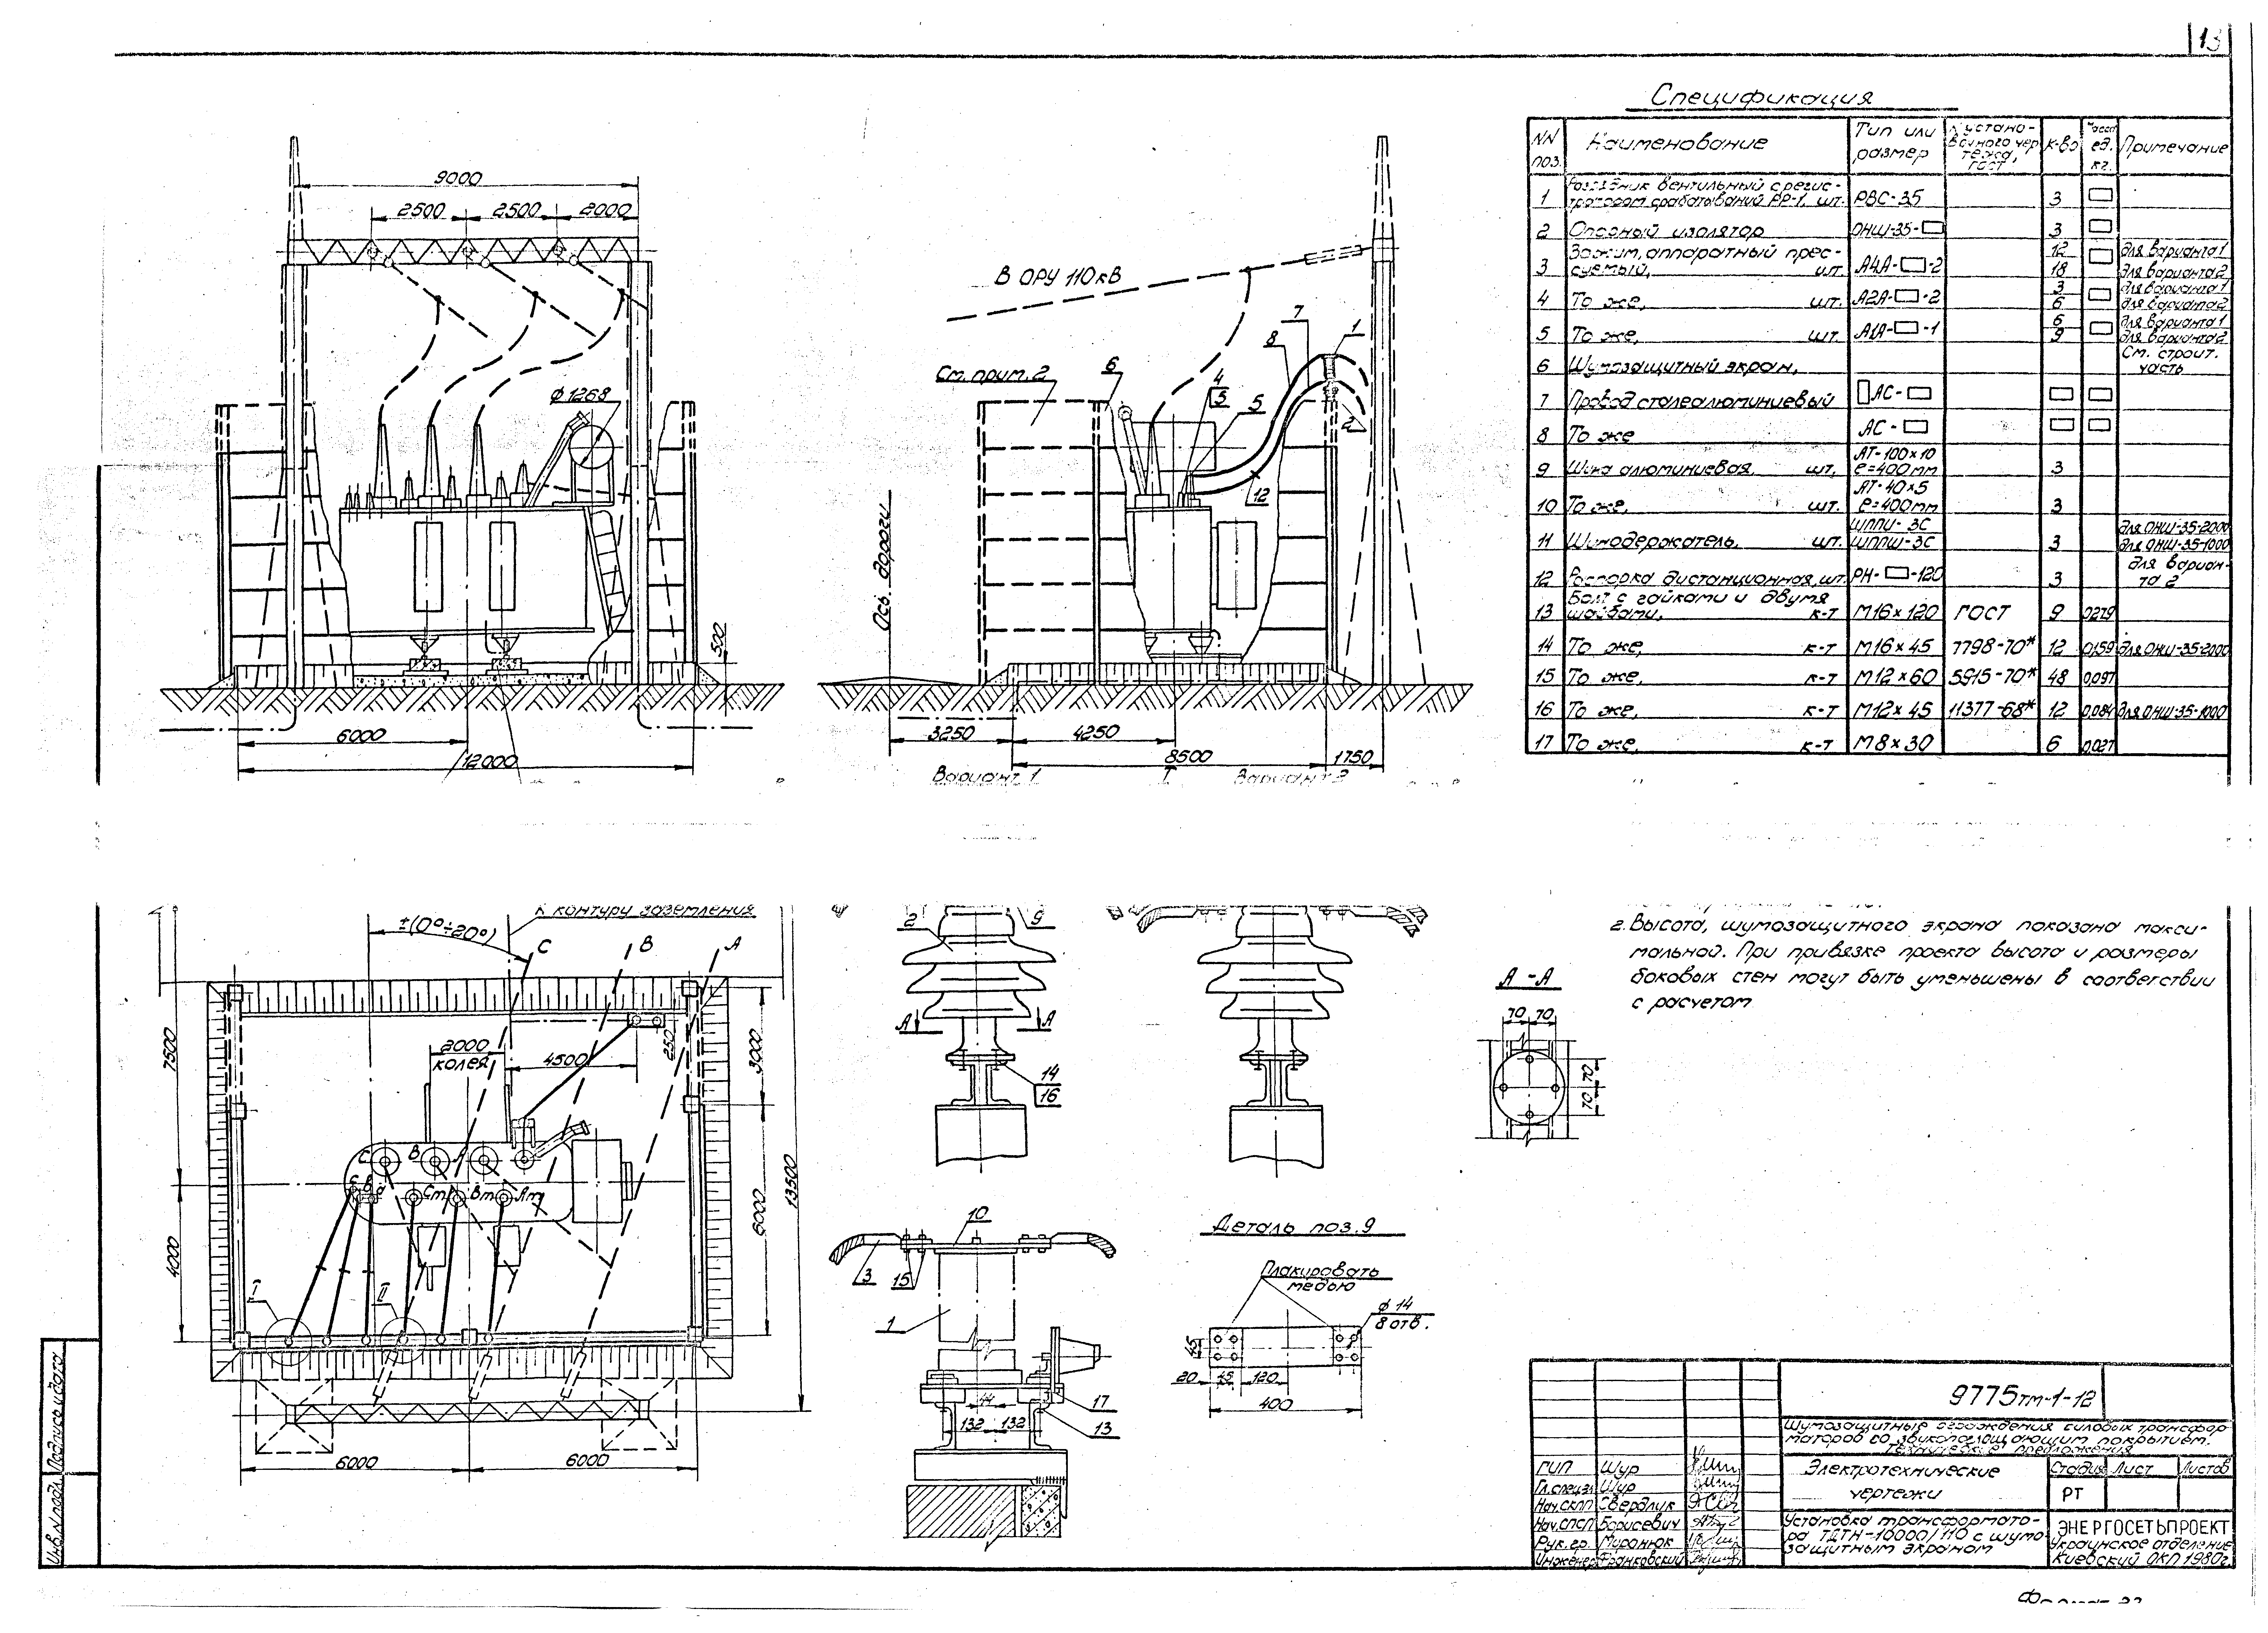 13
Спецификация
NN поз. Наименование Тип или размер К-во ед. кг. Примечание
1 вентильный с регис-
РР-1, шт. РВС-35 3
2 Опорный изолятор ОНШ-35- 3
3 Зажим, аппаратный прес-
суемый, шт. А4А- -2 12 для варианта 1
18 для варианта 2
4 То же, шт. А2А- -2 3 для варианта 1
6 для варианта 2
5 То же, шт. А1А- -1 6 для варианта 1
9 для варианта 2
6 Шумозащитный экран, См. строит. часть
7 Провод сталеалюминиевый АС-
8 То же АС-
9 Шина алюминиевая, шт. АТ-100×10 ℓ=400мм 3
10 То же, шт. АТ-40×5 ℓ=400мм 3
11 Шинодержатель, шт. ШППШ-3С 3 для ОНШ-35-2000
для ОНШ-35-1000
12 Распорка дистанционная, шт. РН- -120 3 для вариан-
та 2
13 Болт с гайками и двумя
шайбами, к-т М16×120 ГОСТ 9 0,279
14 То же, к-т М16×45 7798-70* 12 0,159 для ОНШ-35-2000
15 То же, к-т М12×60 5915-70* 48 0,097
16 То же, к-т М12×45 11377-68* 12 0,084 для ОНШ-35-1000
17 То же, к-т М8×30 6 0,027
9000
2500 2500 2000
ф1268
500
6000
12000
В ОРУ 110кВ
См. прим. 2
Ось дороги
6 8 7 1 4 3 5 2 12
3250 4250
8500 1750
Вариант 1 I Вариант 2
К контуру заземления
±(0°÷20°)
С В А
7500
4000
2000
колея
4500
250
3000
6000
13500
С В А
с в а Ст Вт Ат
I II
6000 6000
2 9
А А
14
16
10
3 15
1
44
132 132
17
13
Деталь поз.9
Плакировать
медью
ф14
8 отв.
45
20 45 120
400
А-А
70 70
70 70
2. Высота, шумозащитного экрана показана макси-
мальной. При привязке проекта высота и размеры
боковых стен могут быть уменьшены в соответствии
с расчетом
9775тм-1-12
Шумозащитные ограждения силовых трансфор-
маторов со звукопоглощающим покрытием.
Технические предложения
Электротехнические
чертежи
Стадия Лист Листов
РТ
Установка трансформато-
ра ТДТН-16000/110 с шумо-
защитным экраном
ЭНЕРГОСЕТЬПРОЕКТ
Украинское отделение
Киевский ОКП 1980г.
ГИП Шур
Гл.спец. Шур
Нач.СКПП Свердлик
Нач.СПСП Борисевич
Рук.гр. Миронюк
Инженер Франковский
Инв.N подл. Подпись и дата